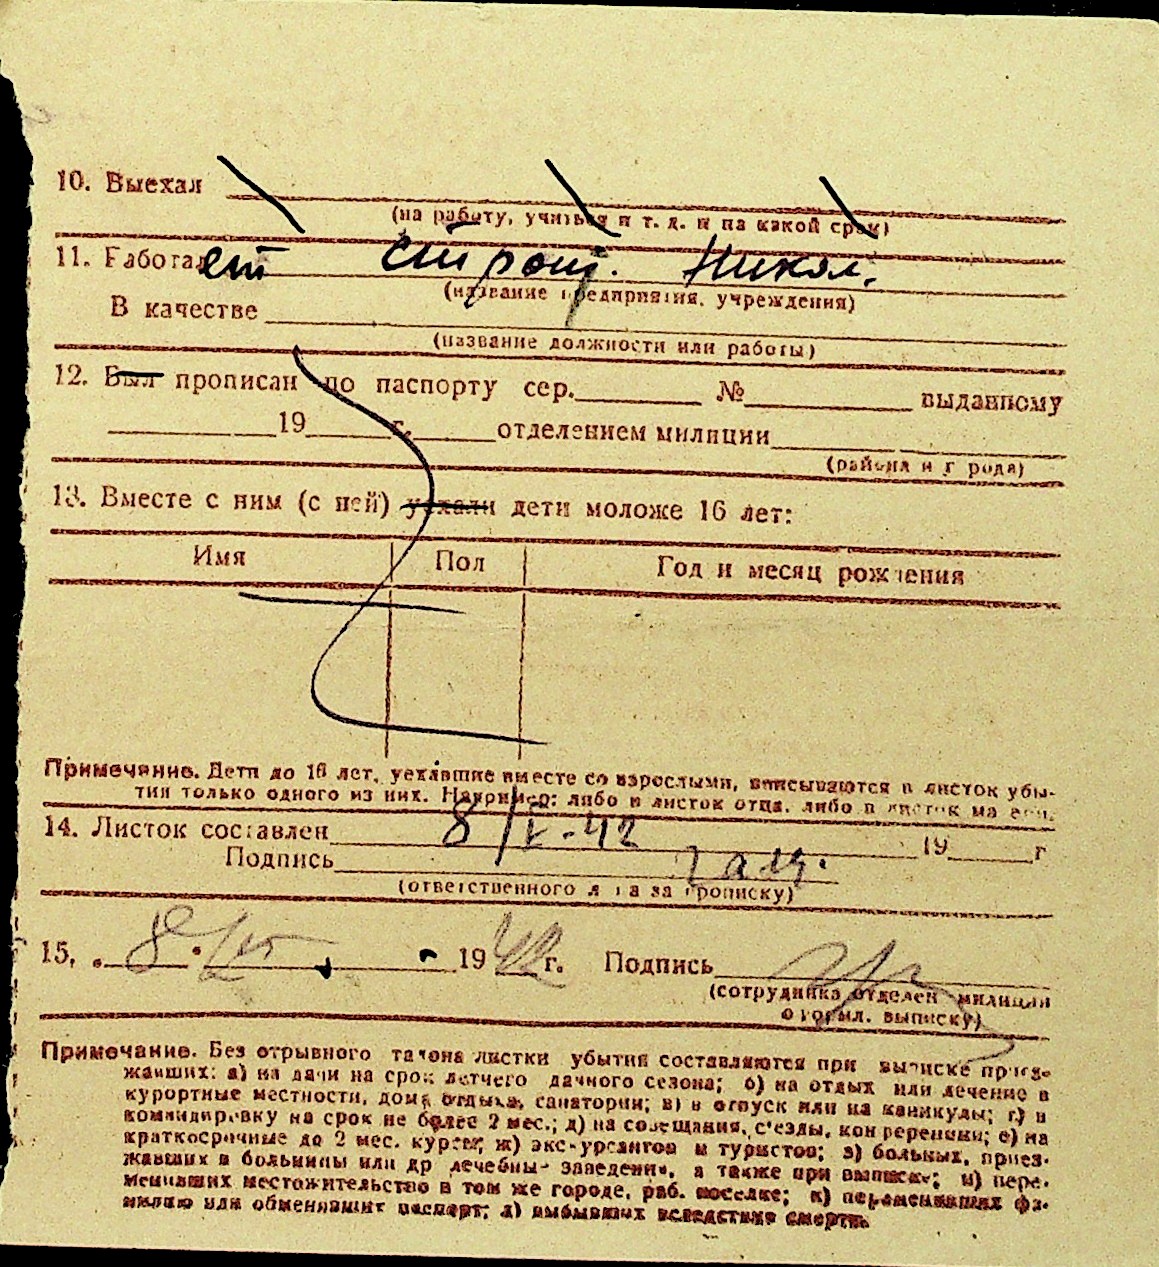 10. Выехал
(на работу, учиться и т. д. и на какой срок)
11. Работает строит. Никол.
(название предприятия, учреждения)
В качестве
(название должности или работы)
12. Был прописан по паспорту сер. № выданному
19 г. отделением милиции
(района и города)
13. Вместе с ним (с ней) уехали дети моложе 16 лет:
Имя Пол Год и месяц рождения
Примечание. Дети до 16 лет, уехавшие вместе со взрослыми, вписываются в листок убы-
тия только одного из них. Например: либо в листок отца, либо в листок матери.
14. Листок составлен 8/V-42 19 г
Подпись
(ответственного лица за прописку)
15. „8" 1942 г. Подпись
(сотрудника отделен милиции
оформл. выписку)
Примечание. Без отрывного талона листки убытия составляются при выписке приез-
жавших: а) на дачи на срок летнего дачного сезона; б) на отдых или лечение в
курортные местности, дома отдыха, санатории; в) в отпуск или на каникулы; г) в
командировку на срок не более 2 мес.; д) на совещания, съезды, конференции; е) на
краткосрочные до 2 мес. курсы; ж) экскурсантов и туристов; з) больных, приез-
жавших в больницы или др лечебные заведения, а также при выписке; и) пере-
менивших местожительство в том же городе, раб. поселке; к) переменивших фа-
милию или обменявших паспорт; л) выбывших вследствие смерти.